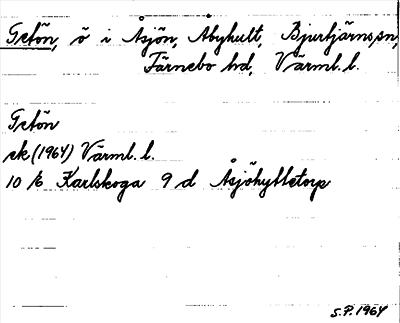 Getön, ö i Åsjön, Abyhult, Bjurtjärns sn,
Färnebo hd, Värml. l.
Getön
ek (1964) Värml. l.
10 /6 Karlskoga 9 d Åsjöhyttetorp
S.P. 1964